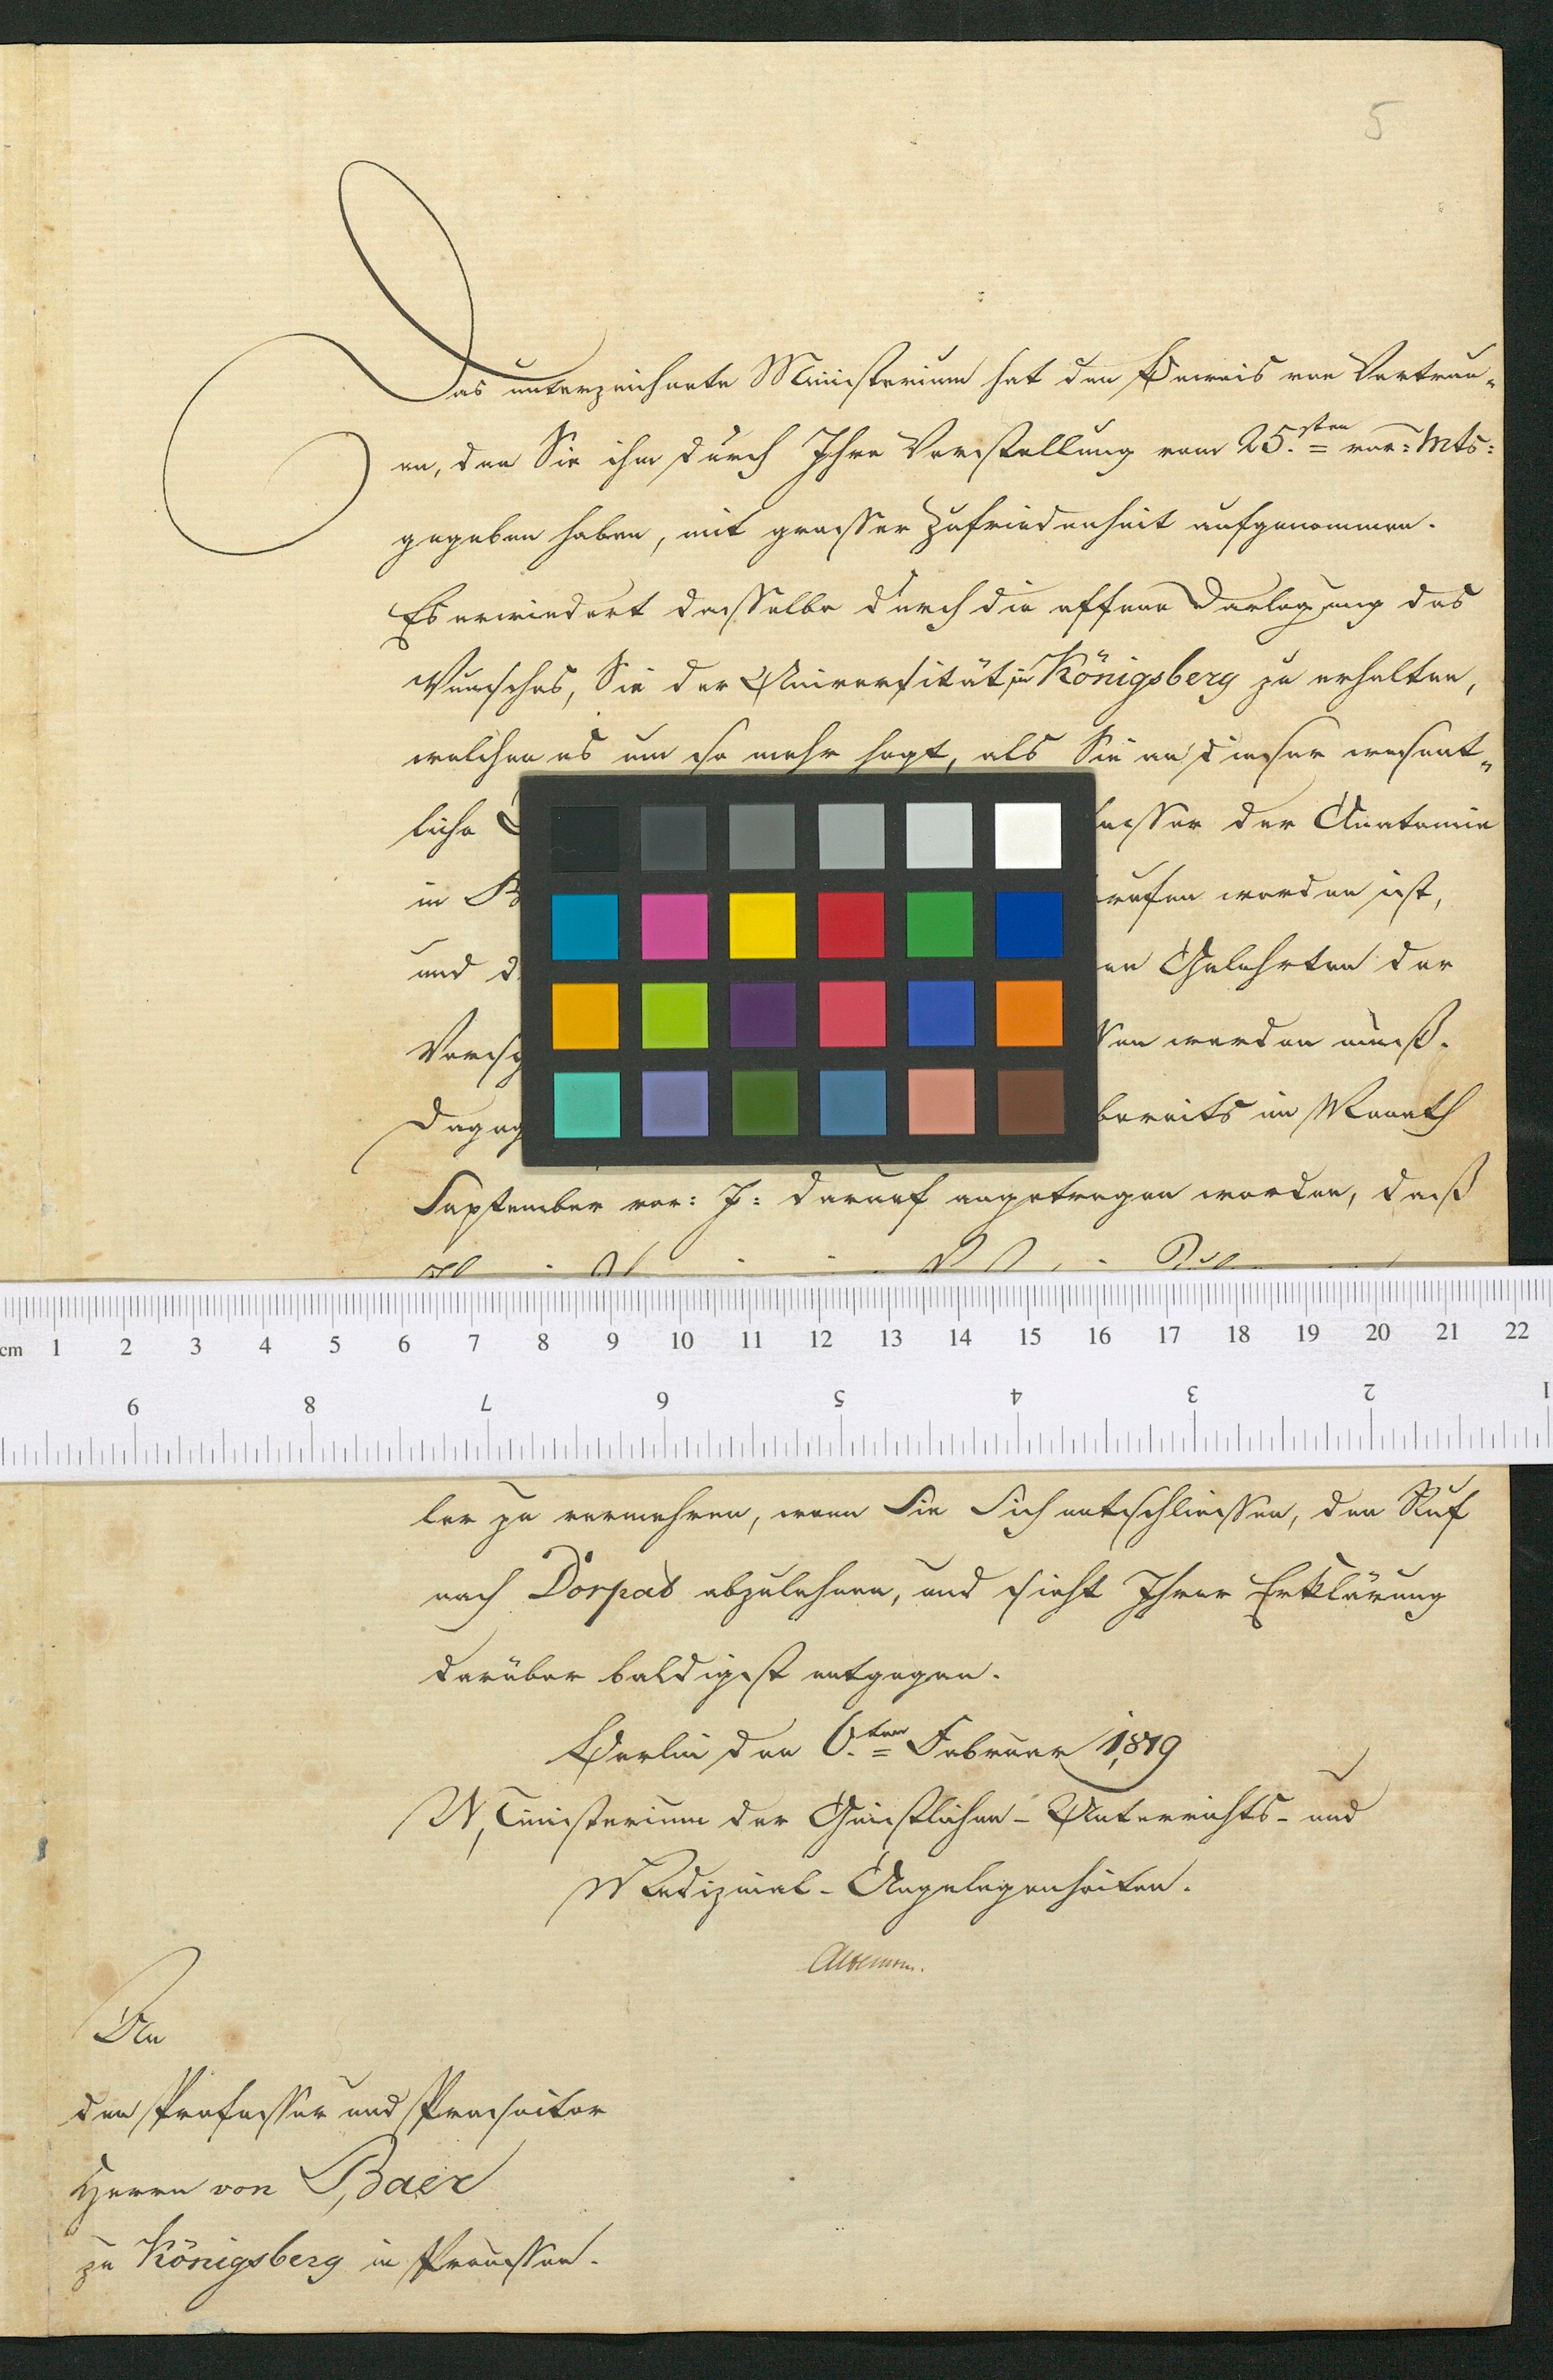 5
Das unterzeichnete Ministerium hat den Beweis von Vertrau-
en, den Sie ihm durch Ihre Vorstellung vom 25.sten vor: Mts:
gegeben haben, mit grosser Zufriedenheit aufgenommen.
Es erwiedert dasselbe durch die offene Darlegung des
Wunsches, Sie der Universität in Königsberg zu erhalten,
welchen es um so mehr hegt, als Sie an dieser wesent-
liche der Anatomie
in worden ist,
und Gelehrten der
werden muß.
bereits im Monath
September vor: J: darauf angetragen worden, daß
cm 1 2 3 4 5 6 7 8 9 10 11 12 13 14 15 16 17 18 19 20 21 22
9 8 7 6 5 4 3 2 1
ler zu vermehren, wenn Sie Sich entschliessen, den Ruf
nach Dorpat abzulehnen, und sieht Ihrer Erklärung
darüber baldigst entgegen.
Berlin den 6.ten Februar 1819
Ministerium der Geistlichen- Unterrichts- und
Medizinal-Angelegenheiten.
Altenstein.
An
den Professor und Prosector
Herrn von Baer
zu Königsberg in Preussen.